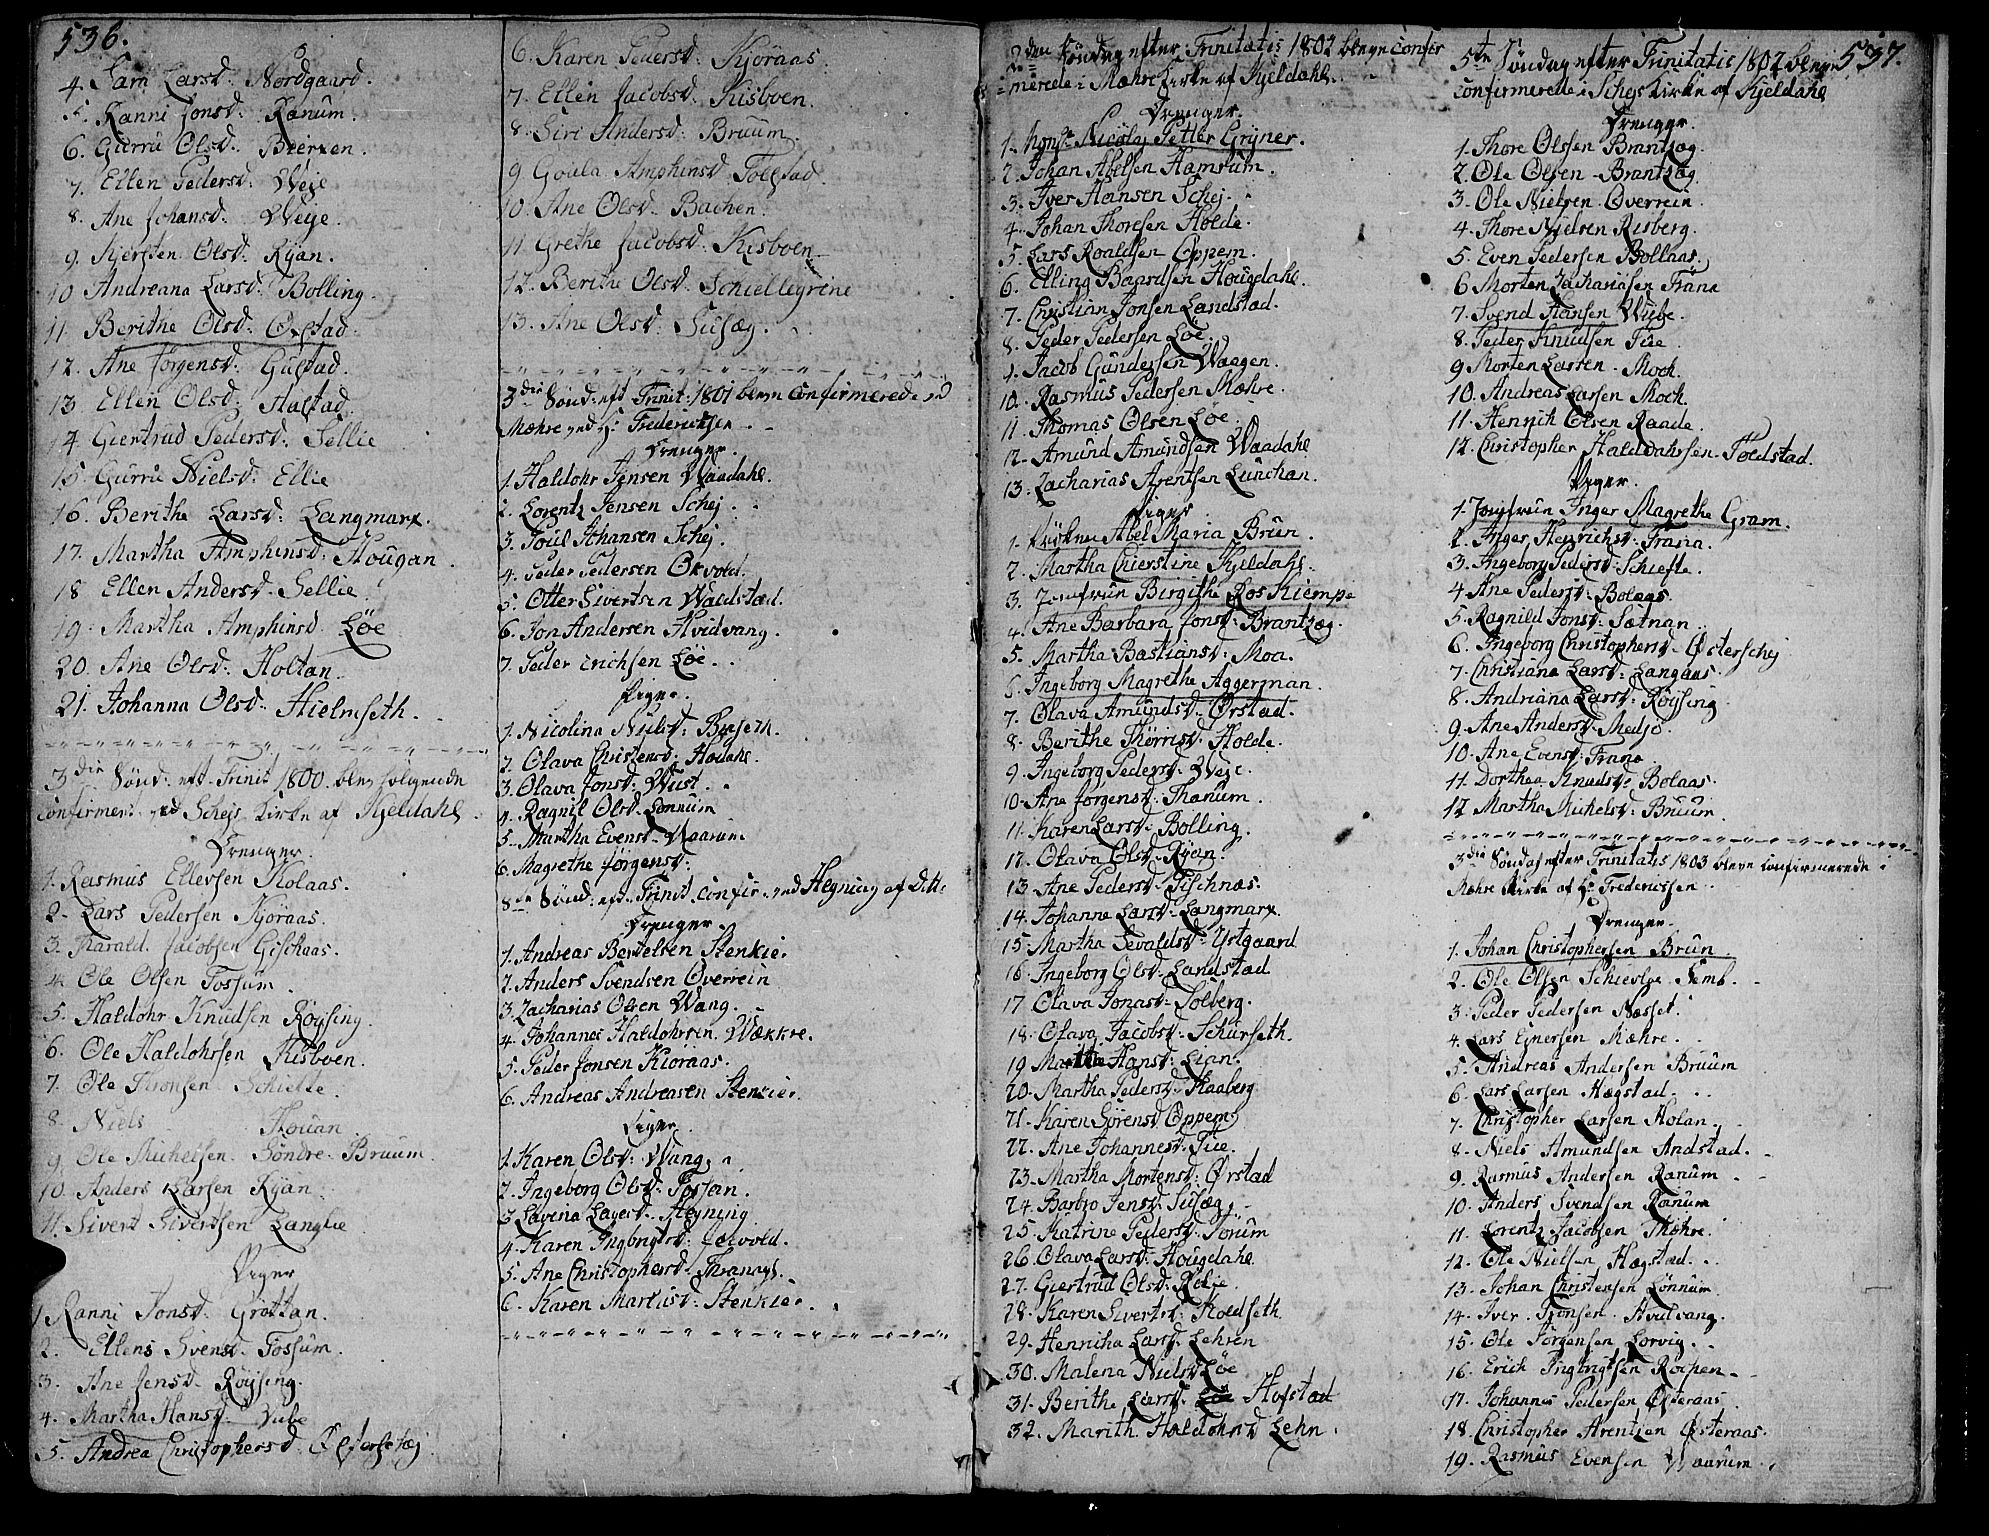 536.
4. Lars d: Nordgaard.
5. Ranni Jonsd: Ranum.
6. Gurru Olsd: Bierzen
7. Ellen Pedersd: Weje
8. Ane Johansd: Weje.
9. Kjersten Olsd: Ryan.
10 Andreana Larsd: Bolling.
11 Berithe Olsd: Opstad
12. Ane Jørgensd: Gustad.
13 Ellen Olsd: Halstad
14. Giertrud Pedersd: Sellie
15. Gurru Nielsd: Ellie
16. Berithe Larsd: Langmarx.
17. Martha Amphinsd: Hougan.
18 Ellen Andersd. Sellie.
19. Martha Amphinsd. Løe
20. Ane Olsd: Holtan.
21. Johanna Olsd: Hielmseth.
3die Sønd: eft. Trinit 1800. blev følgende
confirmert ved Schejs Kirke af Kjeldahl.
Drenger.
1. Rasmus Ellevsen Kolaas.
2. Lars Pedersen Kjøraas.
3. Harald. Jacobsen Gischaas.
4. Ole Olsen Fossum.
5. Haldohr Knudsen Røysing.
6. Ole Haldohrsen Kisboen.
7. Ole Thronsen Schielle
8. Niels Houan
9. Ole Michelsen. Søndre Bruum.
10. Anders Larsen Ryan
11. Sivert Sivertsen Langlie
Piger
1. Ranni Jonsd. Grøttan.
2. Ellens Svensd. Fossum.
3. Ane Jensd. Røysing.
4. Martha Hansd. Vibe
5. Andrea Christophersd. Østerschej
6. Karen Pedersd. Kjøraas.
7. Ellen Jacobsd. Kisboen.
8. Siri Andersd: Bruum.
9 Goula Amphinsd Follstad.
10. Ane Olsd. Bachen.
11 Grethe Jacobsd. Kisboen
12. Berithe Olsd. Schiellegrine
13. Ane Olsd: Sulsæg.
3die Sønd: eft Trinit: 1801 bleve confirmerede ved
Mæhre ved Hr Friderichsen
Drenger.
1. Haldohr Jensen Waadahl.
2. Lorentz Jensen Schej.
3. Poul Johansen Schej.
4. Peder Pedersen Okvold.
5. Otter Sivertsen Waldstad.
6. Jon Andersen Hvidvang.
7. Peder Erichsen Løe.
Piger.
1. Nicolina Nielsd: Binseth.
2. Olava Christensd: Hodahl.
3. Olava Jonsd: Wist.
4. Ragnil Olsd. Lønnum
5. Martha Evensd. Waarum
6. Magrethe Jørgensd:
8de Sønd: eft. Trinit confir: ved Hegning af Ditto
Drenger.
1. Andreas Bertelsen Stenkier.
2. Anders Svendsen Overrein
3. Zacharias Olsen Wang.
4. Johannes Haldohrsen. Wækkre.
5. Peder Jonsen Kioraas.
6. Andreas Andreasen Stenkier.
Piger.
1. Karen Olsd: Wang.
2. Ingeborg Olsd. Fossan.
3. Lavina Larsd. Hegning
4. Karen Ingbrigtsd:
5. Ane Christophersd.
6. Karen Martisd: Stenkier.
2den Søndag efter Trinitatis 1802 bleve confir
merede i Mæhre Kirke af Kjeldahl.
Drenger.
1. Monsr Nicolaj Petter Grÿner.
2. Johan Abelsen Hamrum.
3. Iver Hansen Schej.
4. Johan Thoresen Holde.
5. Lars Roaldsen Oppem.
6. Elling Baardsen Hougdahl.
7. Christian Jonsen Landstad.
8. Peder Pedersen Løe
9. Jacob Gundersen Waagen.
10. Rasmus Pedersen Mæhre.
11 Thomas Olsen Løe.
12. Amund Amundsen Waadahl
13. Zacharias Arentsen Lunchan.
Piger
1. Frøken Abel Maria Brun.
2. Martha Chierstine Kjeldahl.
3. Jomfrun Birgithe Ros Kiempe
4. Ane Barbara Jonsd. Brantzæg.
5. Martha Bastiansd. Moa.
6. Ingeborg Magrethe Aggerman.
7. Olava Amundsd. Ørstad.
8. Berithe Thorrisd. Holde.
9. Ingeborg Pedersd. Weje.
10. Ane Jørgensd. Thanum.
11. Karen Larsd. Bolling.
12. Olava Olsd. Ryan.
13. Ane Pedersd. Fischnæs.
14. Johanne Larsd. Langmarx.
15. Martha Sevaldsd: Ystgaard
16. Ingeborg Olsd. Landstad
17 Olava Jonasd: Solberg.
18. Olava Jacobsd. Schurseth.
19 Hansd. Lian.
20. Martha Pedersd. Haaberg
21. Karen Sørensd Oppem
22. Ane Johannesd. Tue.
23. Martha Mortensd. Ørstad
24. Barbro Jensd. Sulsæg
25. Katrine Pedersd. Forum
26. Olava Larsd. Hougdahl
27. Giertrud Olsd. Rolie.
28. Karen Sivertsd. Holdseth.
29. Hennicha Larsd. Lehren
30. Malena Nielsd Løe
31. Berithe Larsd. Hofstad
32. Marith. Haldohrsd Lehn.
5te Søndag efter Trinitatis 1802 bleve 537.
confirmerede i Schejs Kirke af Kjeldahl
Drenger.
1. Thore Olssen Brantzæg.
2. Ole Olsen Brantzæg
3. Ole Nielsen Overrein.
4. Thore Nielsen Risberg.
5. Even Pedersen Bollaas.
6 Morten Zachariasen Frana
7. Svend Hansen Wibe.
8. Peder Knudsen Tue.
9 Morten Larsen. Moch.
10. Andreas Larsen Moch.
11. Henrich Olsen Raade.
12. Christopher Halddahrsen Foldstad.
Piger.
1. Jomfrun Inger Magrethe Gram.
2. Inger Henrichsd: Frana.
3. Ingeborg Pedersd. Schiefte.
4 Ane Pedersd: Bolaas
5. Ragnild Jonsd. Sætnan
6. Ingeborg Christophersd. Østerschej
7. Christiana Larsd: Langaas.
8. Andriana Larsd. Røysing
9. Ane Andersd. Medjø.
10. Ane Evensd. Frana
11. Dorthea Knudsd. Bolaas.
12 Martha Michelsd. Bruum.
3die Søndag efter Trinitatis 1803 bleve confirmerede i
Mæhre Kirke af Hr Frederichsen
Drenger.
1. Johan Christophersen Brun.
2. Ole Olsen Schievloe. Semb.
3. Peder Pedersen Næsset.
4. Lars Ejnersen Mæhre.
5. Andreas Andersen Bruum
6. Lars Larsen Hægstad.
7. Christopher Larsen Holan.
8. Niels Amundsen Andstad.
9. Rasmus Andersen Ranum
10. Anders Svendsen Ranum
11. Lorentz Jacobsen Mæhre.
12. Ole Nielsen Hægstad.
13. Johan Christensen Lønnum.
14. Iver Tronsen. Hvidvang.
15. Ole Jørgensen Lorvig.
16. Erich Ingbrigtsen Rochen.
17. Johannes Pedersen Østeraas
18. Christopher Arentzen Østeraas.
19. Rasmus Evensen Waarum.